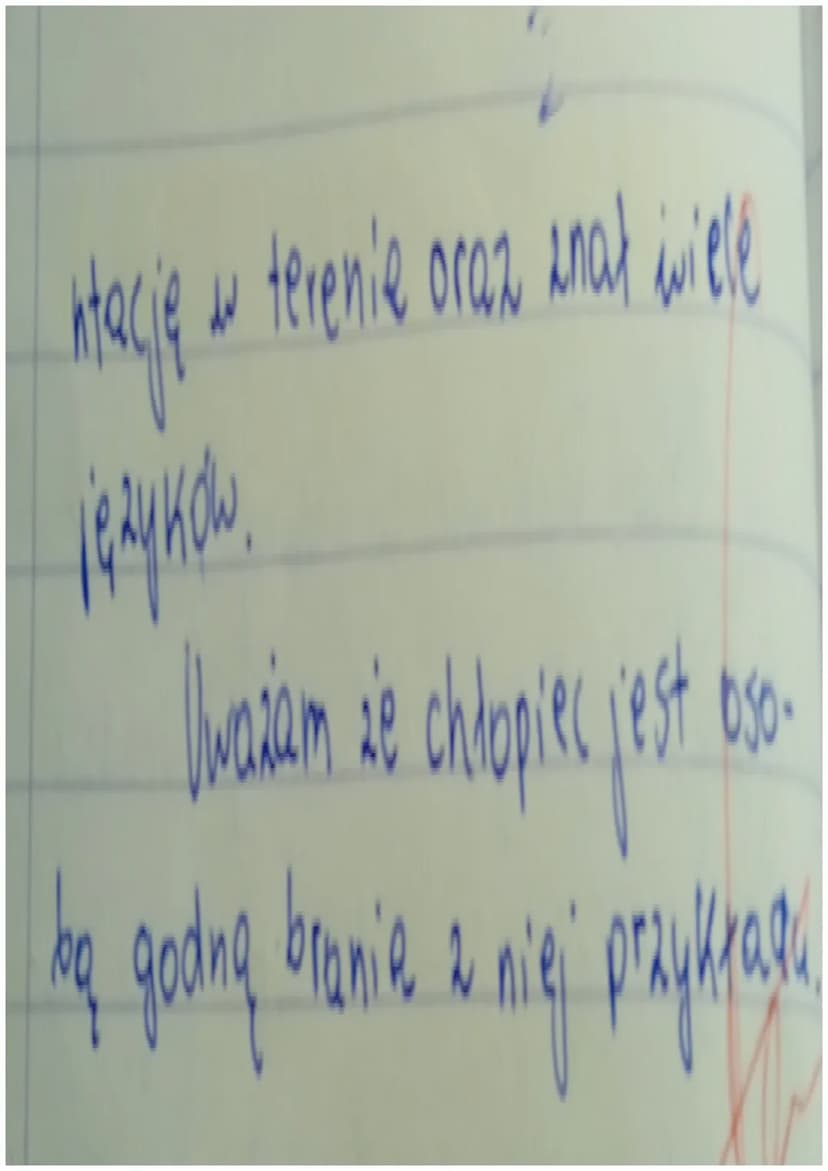 ntację w terenie oraz znał wiele
języków.
Uważam że chłopiec jest oso-
bą godną branie z niej przykładu.